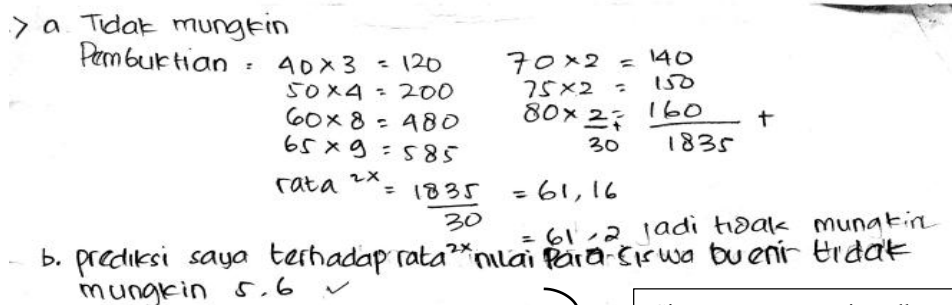 > a Tidak mungkin
Pembuktian : 40 x 3 = 120    70 x 2 = 140
50 x 4 = 200    75 x 2 = 150
60 x 8 = 480    80 x 2 = 160 +
65 x 9 = 585    30    1835
rata 2x = 1835 / 30 = 61,16
= 61,2 jadi tidak mungkin
b. prediksi saya terhadap rata 2x nilai para siswa bu enir tidak
mungkin 5.6 ✓